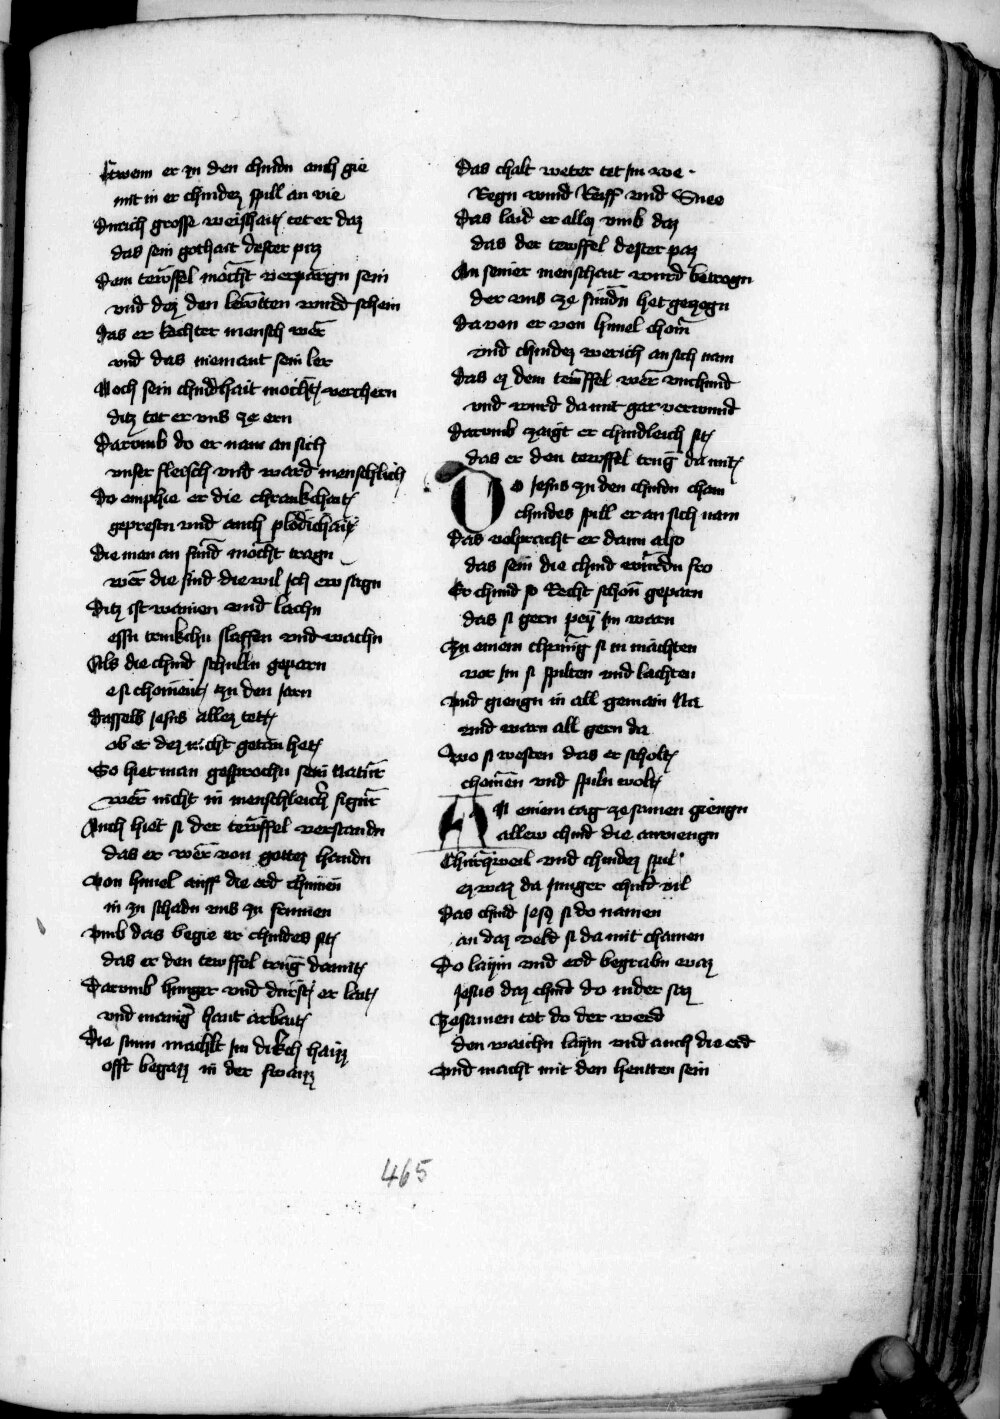 Etwem er zu den chindn auch gie
mit in er chindez spill an vie
Durich grosse weishait tet er daz
das sein gothait dester paz
Dem tewffel möcht verpargn sein
vnd dez den lewtten wurd schein
Das er Rechter mensch wer
vnd das niemant sein ler
Noch sein chindhait möcht verchern
ditz tet er vns ze ern
Darumb do er nam an sich
vnser fleisch vnd ward menschlich
Do emphie er die chrankchait
geprestn vnd auch plodichait
Die man an sünd möcht tragn
wer die sind die wil ich ew sagn
Ditz ist wainen vnd lachn
essn trinkchn slaffen vnd wachn
Als die chind schulln geparn
e si choment zu den jarn
Dasselb jesus allez tett
ob er dez nicht getan het
So hiet man gesprochn sein Natur
wer nicht in menschleicher figur
Auch hiet si der tewffel verstandn
das er wer von gottez handn
Von himel auff die erd chumen
in zu schadn vns zu frumen
Vmb das begie er chindes sit
das er den tewffel trug damit
Darumb hunger vnd durst er lait
vnd maniger hant arbait
Die sunn machkt im dikch haizz
offt begazz in der swaizz
Das chalt weter tet im we
Regn wind Reiff vnd Snee
Das laid er allez vmb daz
das der tewffel dester paz
An seiner menschait wurd betrogn
der vns ze sündn het gezogn
Da von er von himel chom
vnd chindez werich an sich nam
Das ez dem tewffel wer vnchund
vnd wurd da mit gar verwund
Darumb zaigt er chindleich sit
das er den tewffel trug da mit
Do Jesus zu den chindn cham
chindes spill er an sich nam
Das volpracht er dann also
das sein die chind wurdn fro
Er chund so Recht schon geparn
das si gern pey im warn
Zu einem chunig si in machten
vor im si spilten vnd lachten
Vnd giengn in all gemain Na
vnd warn all gern da
Wo si westen das er scholt
chomen vnd spiln wolt
An einem tag zesamen giengn
allew chind die anviengn
Churczweil vnd chindez spil
ez waz da junger chind vil
Das chind jesus si do namen
an daz veld si da mit chamen
Do laym vnd erd begrabn waz
Jesus daz chind do nider saz
Zesamen tet do der werd
den waichn laym vnd auch die erd
Vnd macht mit den hentten sein
465